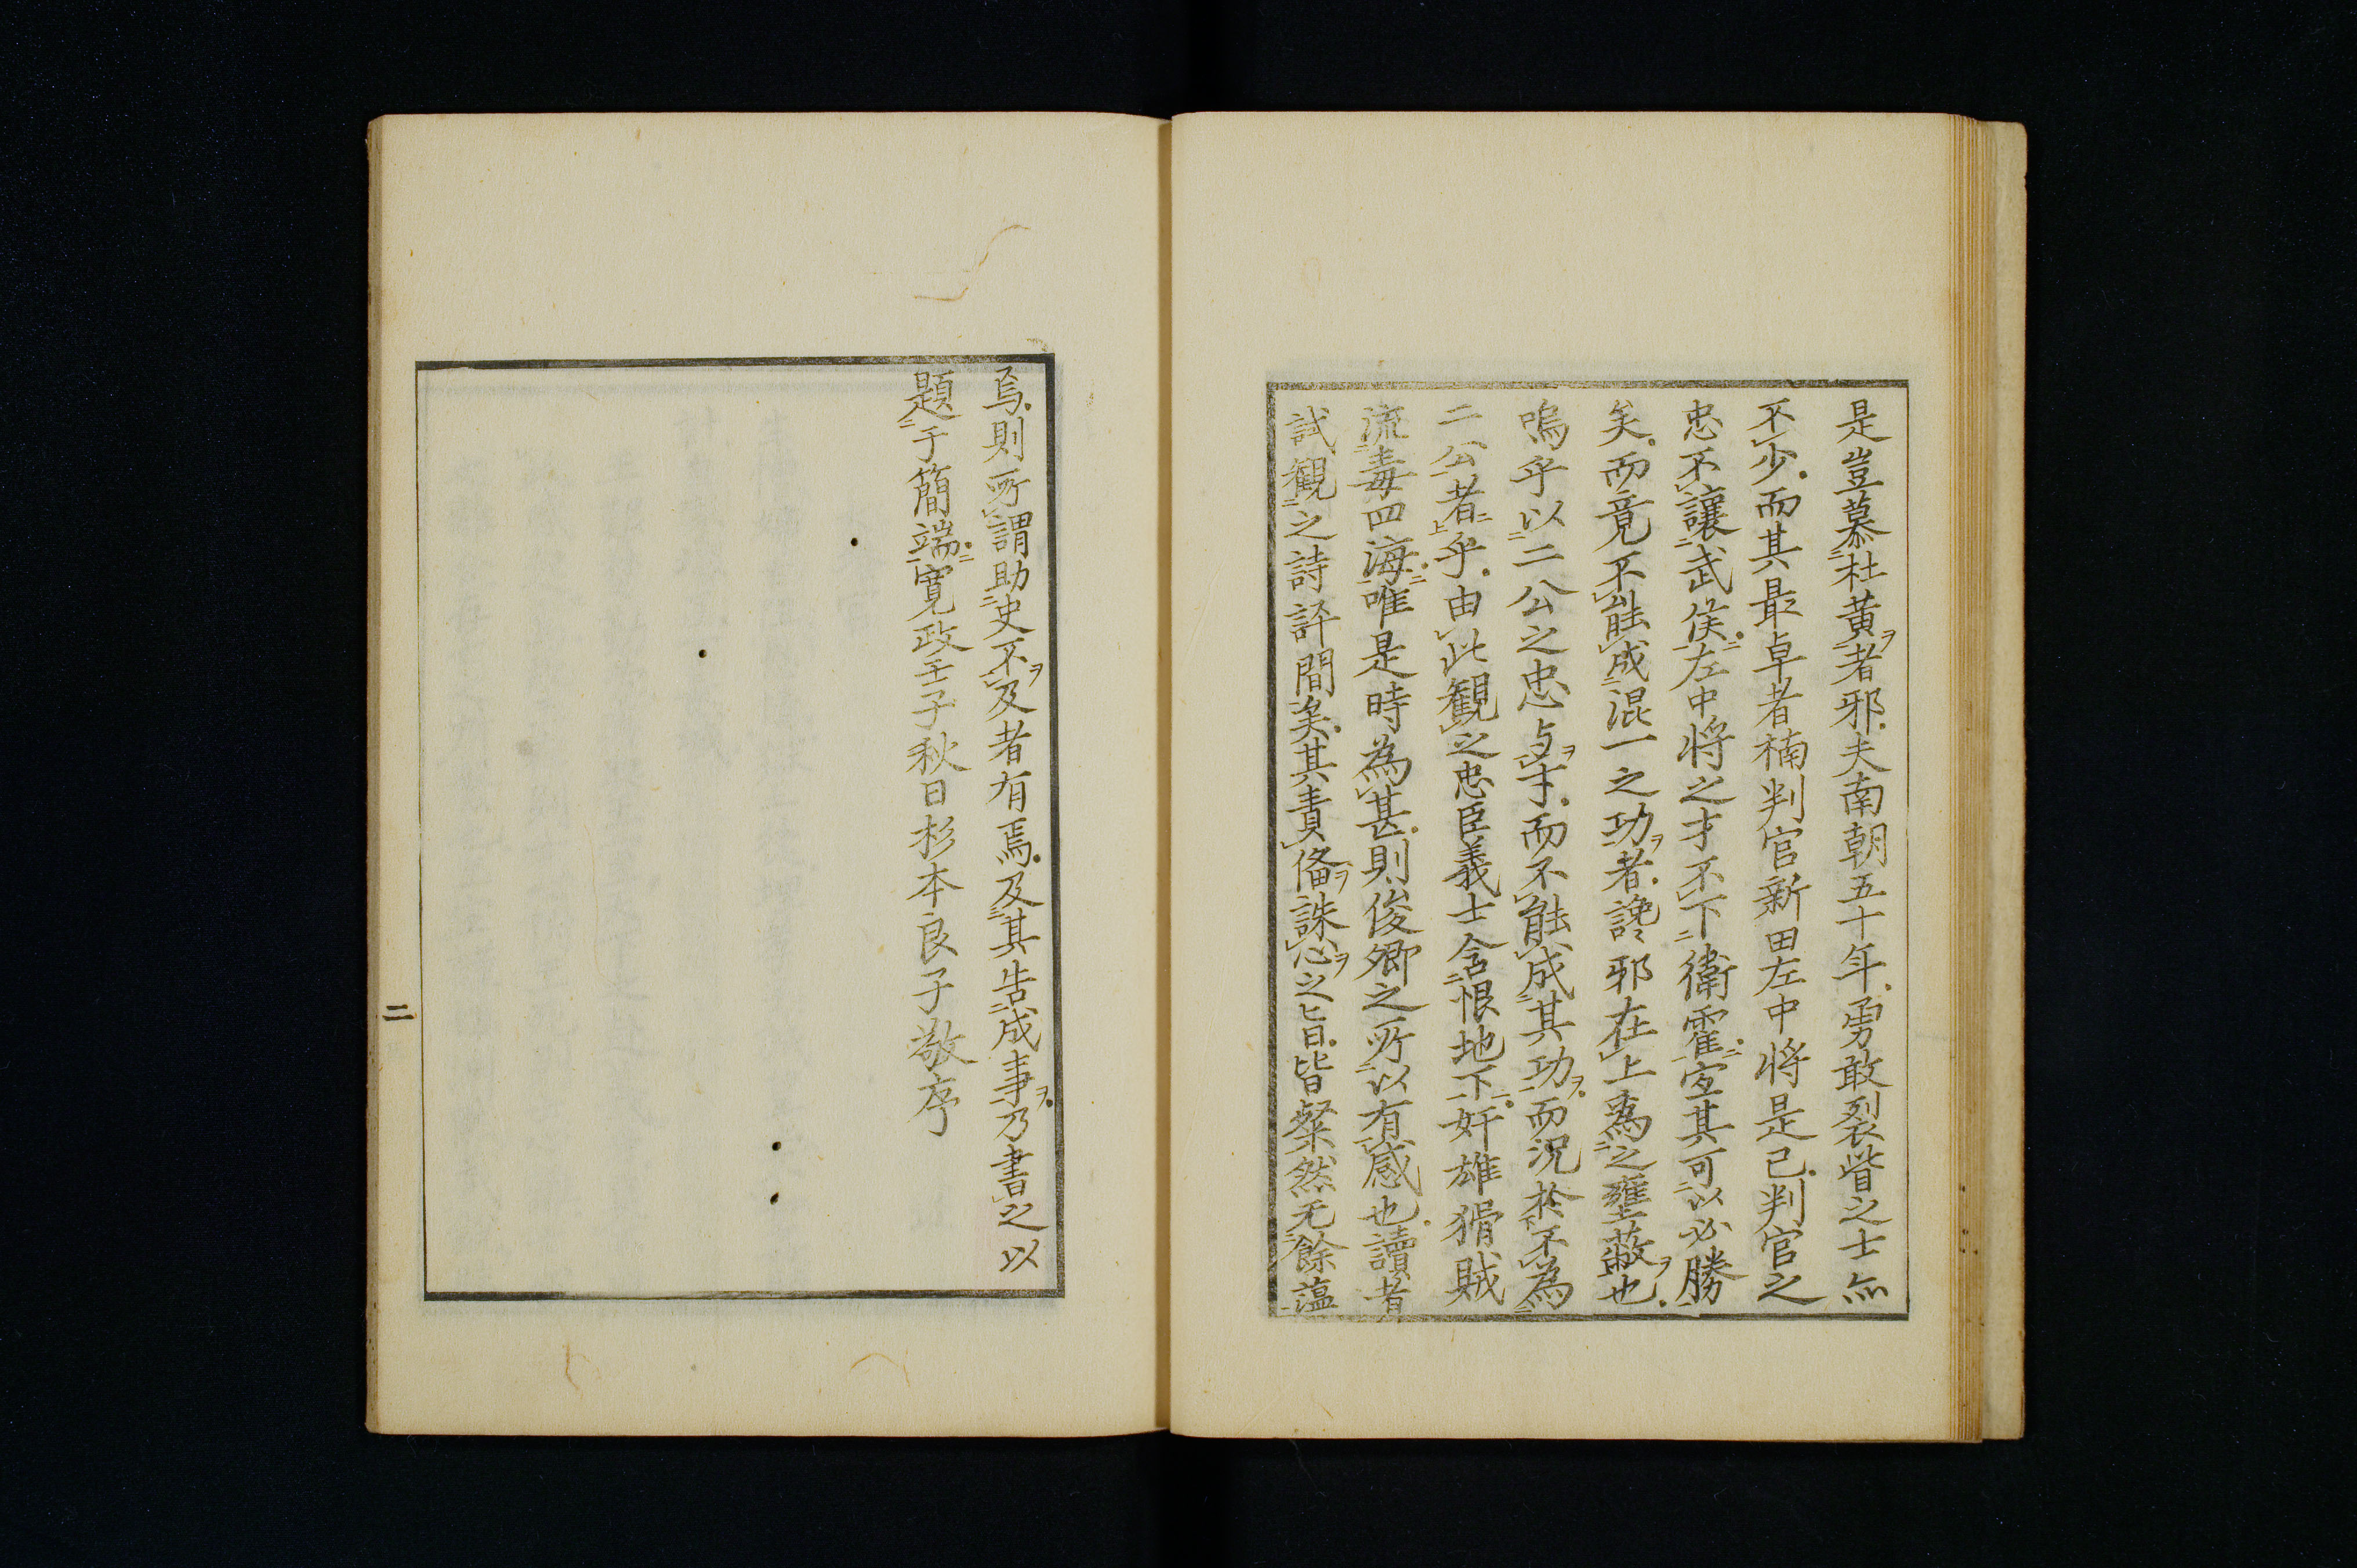 是豈慕杜黄者邪夫南朝五十年勇敢裂眥之士亦
不少而其最卓者楠判官新田左中将是已判官之
忠不讓武侯左中将之才不下衛霍宜其可以必勝
矣而竟不能成混一之功者讒邪在上為之壅蔽也
嗚乎以二公之忠与才而不能成其功而況於不為
二公者乎由此観之忠臣義士含恨地下奸雄猾賊
流毒四海唯是時為甚則俊卿之所以有感也讀者
試観之詩評間矣其責俻誅心之旨皆粲然无餘薀
焉則所謂助史不及者有焉及其告成事乃書之以
題于簡端寛政壬子秋日杉本良子敬序
二